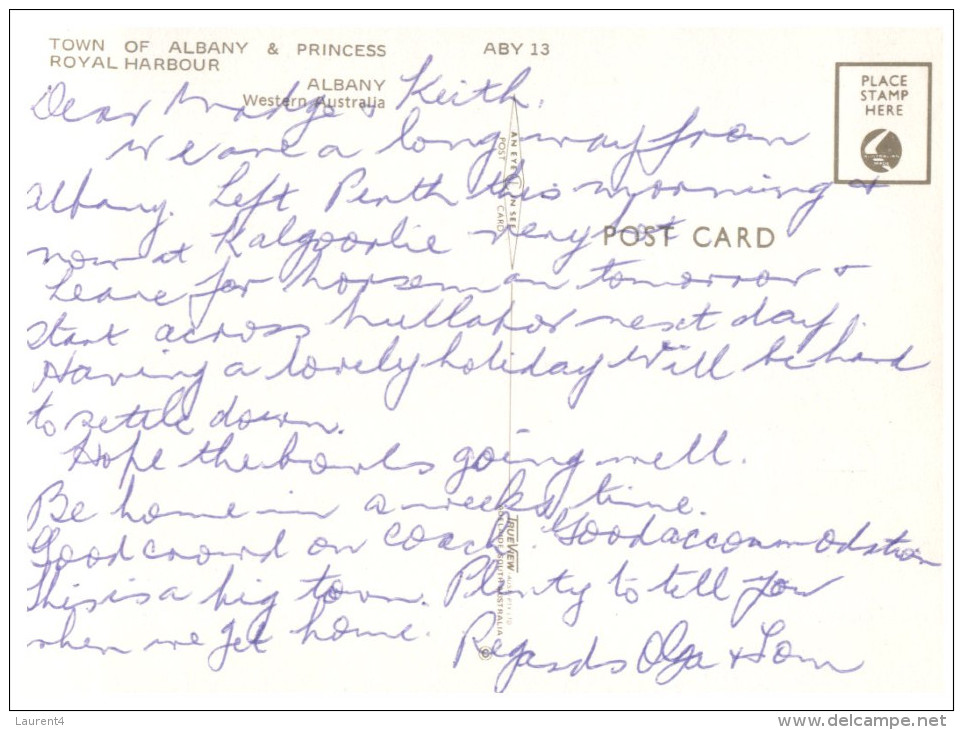 TOWN OF ALBANY & PRINCESS
ROYAL HARBOUR
ABY 13
ALBANY
Western Australia
PLACE
STAMP
HERE
Dear Madge & Keith,
We are a long way from
Albany. Left Perth this morning &
now at Kalgoorlie very hot
POST CARD
Leave for Norseman tomorrow &
start across Nullabor next day.
Having a lovely holiday Will be hard
to settle down.
Hope the bowls going well.
Be home in a weeks time.
Good crowd on coach. Good accommodation
This is a big town. Plenty to tell you
when we get home.
Regards Olga & Tom
AN EYE CAN SEE
POST CARD
TRUEVIEW
SOUTH AUSTRALIA
©
Laurent4
www.delcampe.net